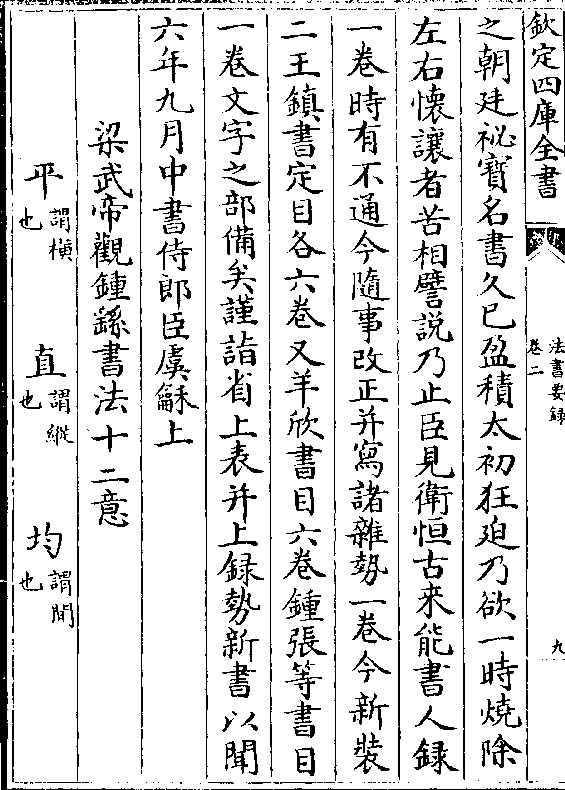 欽定四庫全書
法書要録
卷二
九
之朝廷祕寳名書久已盈積太初狂廹乃欲一時燒除
左右懷讓者苦相譬説乃止臣見衛恒古来能書人録
一卷時有不通今隨事改正并寫諸雜勢一卷今新裝
二王鎮書定目各六卷又羊欣書目六卷鍾張等書目
一卷文字之部備矣謹詣省上表并上録勢新書以聞
六年九月中書侍郎臣虞龢上
梁武帝觀鍾繇書法十二意
平謂橫也 直謂縱也 均謂閒也